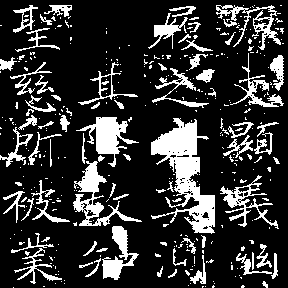 源文顯義幽
履之者莫測
其際故知
聖慈所被業